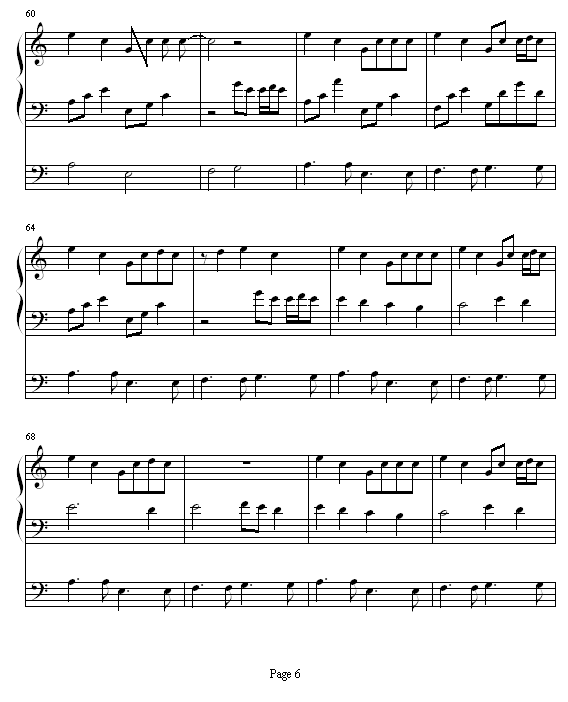 60
64
68
Page 6